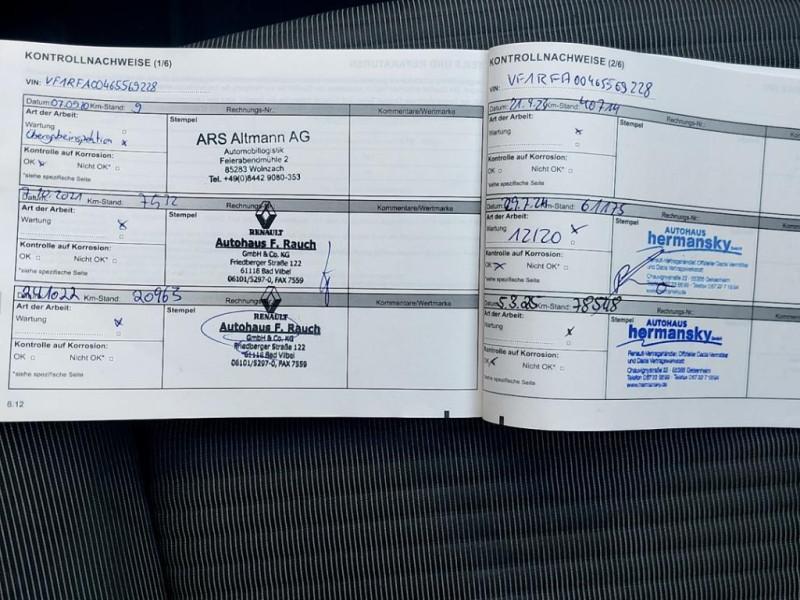 KONTROLLNACHWEISE (1/6)
VIN: VF1RFA00465569228
Datum: Km-Stand: 9 Rechnungs-Nr.: Kommentare/Wertmarke
Art der Arbeit: Stempel
Wartung
x
Kontrolle auf Korrosion:
OK x Nicht OK*
*siehe spezifische Seite
ARS Altmann AG
Automobillogistik
Feierabendmühle 2
85283 Wolnzach
Tel. +49(0)8442 9080-353
Km-Stand: Rechnungs- Kommentare/Wertmarke
Art der Arbeit: Stempel
Wartung x
Kontrolle auf Korrosion:
OK Nicht OK*
*siehe spezifische Seite
RENAULT
Autohaus F. Rauch
GmbH & Co. KG
Friedberger Straße 122
61118 Bad Vilbel
06101/5297-0, FAX 7559
Km-Stand: 20963 Rechnungs- Kommentare/Wertmarke
Art der Arbeit: Stempel
Wartung x
Kontrolle auf Korrosion:
OK Nicht OK*
*siehe spezifische Seite
RENAULT
Autohaus F. Rauch
GmbH & Co. KG
Friedberger Straße 122
61118 Bad Vilbel
06101/5297-0, FAX 7559
6.12
KONTROLLNACHWEISE (2/6)
VIN: VF1RFA00465569228
Datum: Km-Stand: 40714 Rechnungs-Nr.:
Art der Arbeit: Stempel
Wartung x
Kontrolle auf Korrosion:
OK Nicht OK*
*siehe spezifische Seite
Datum: 29.7.24 Km-Stand: 61175 Rechnungs-Nr.:
Art der Arbeit: Stempel
Wartung x
12120
Kontrolle auf Korrosion:
OK x Nicht OK*
*siehe spezifische Seite
AUTOHAUS
hermansky
Datum: 5.3.25 Km-Stand: 78548 Rechnungs-Nr.:
Art der Arbeit: Stempel
Wartung x
Kontrolle auf Korrosion:
OK x Nicht OK*
*siehe spezifische Seite
AUTOHAUS
hermansky
www.hermansky.de